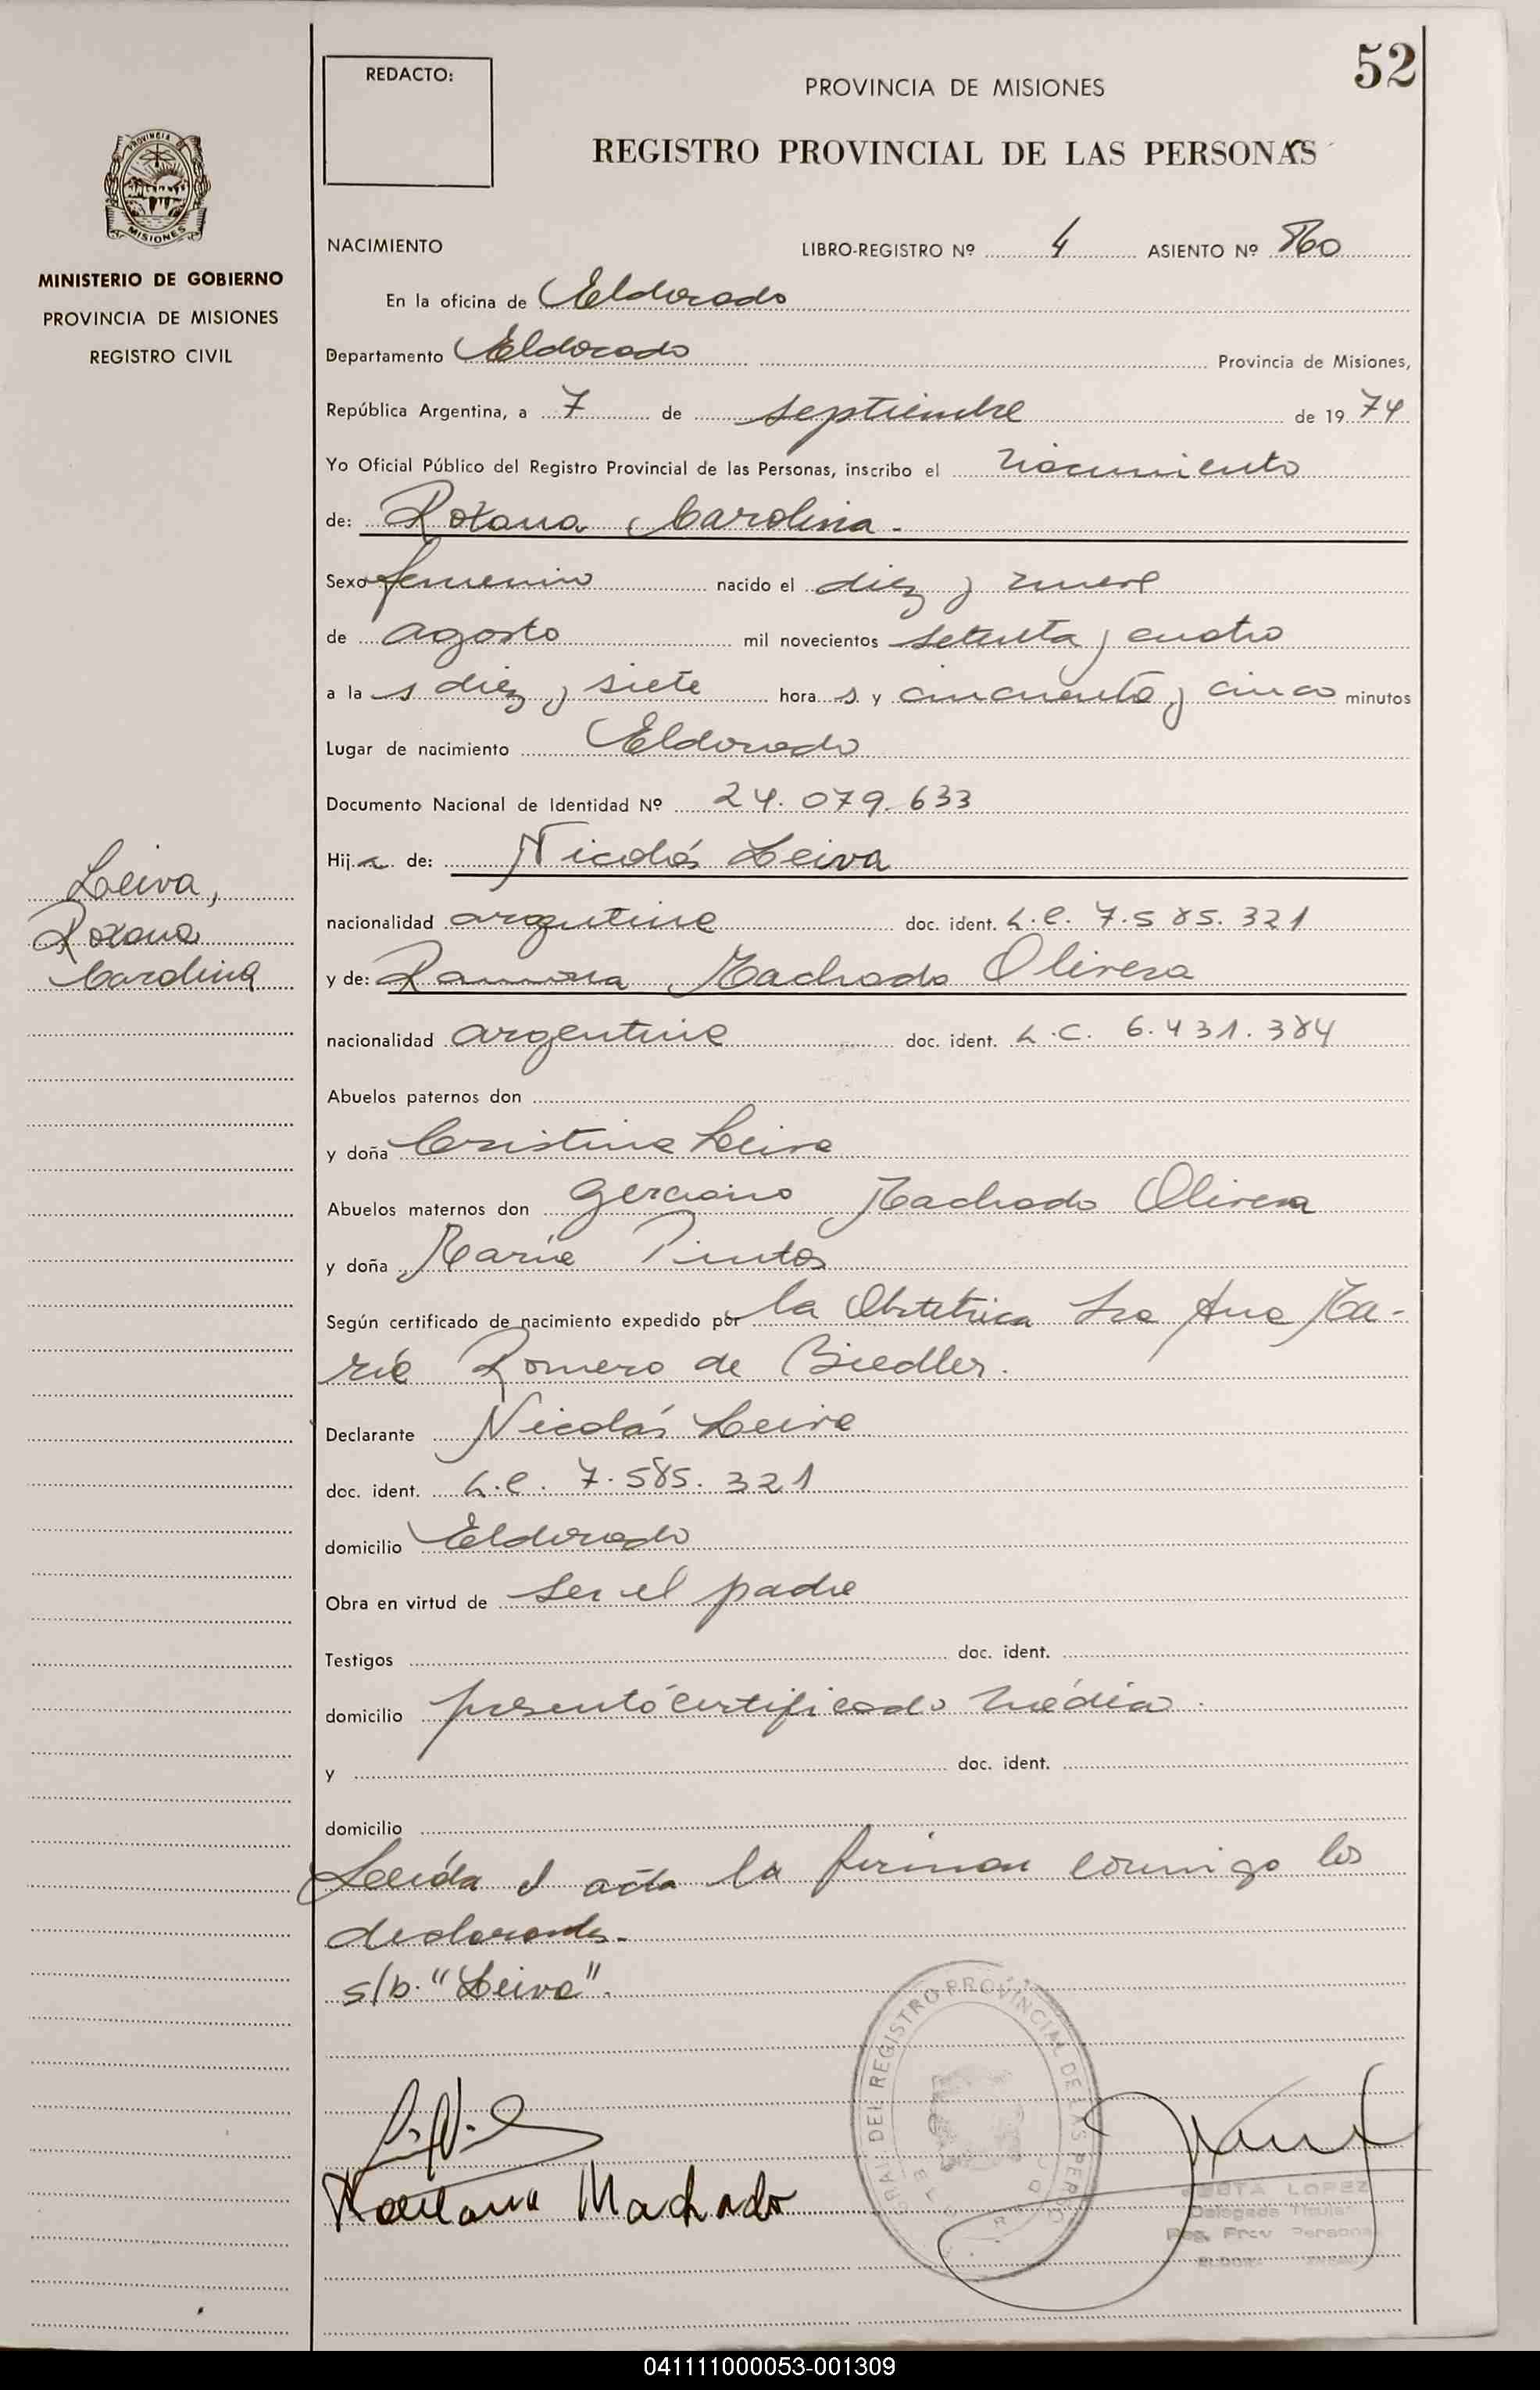 52
REDACTO:
PROVINCIA DE MISIONES
REGISTRO PROVINCIAL DE LAS PERSONAS
PROVINCIA
MISIONES
MINISTERIO DE GOBIERNO
PROVINCIA DE MISIONES
REGISTRO CIVIL
NACIMIENTO LIBRO-REGISTRO Nº 4 ASIENTO Nº 860
En la oficina de Eldorado
Departamento Eldorado Provincia de Misiones,
República Argentina, a 7 de septiembre de 1974
Yo Oficial Público del Registro Provincial de las Personas, inscribo el nacimiento
de: Roxana Carolina.
Sexo femenino nacido el diez y nueve
de agosto mil novecientos setenta y cuatro
a la s diez y siete hora s y cincuenta y cinco minutos
Lugar de nacimiento Eldorado
Documento Nacional de Identidad Nº 24.079.633
Hij a de: Nicolás Leiva
Leiva,
Roxana
Carolina
nacionalidad argentina doc. ident. L.E. 7.585.321
y de: Ramona Machado Olivera
nacionalidad argentina doc. ident. L.C. 6.431.384
Abuelos paternos don
y doña Cristina Leiva
Abuelos maternos don Machado Olivera
y doña María Pintos
Según certificado de nacimiento expedido por la Obstetrica Sra Ana Ma-
ría Romero de Biedler.
Declarante Nicolás Leiva
doc. ident. L.E. 7.585.321
domicilio Eldorado
Obra en virtud de ser el padre
Testigos doc. ident.
domicilio presentó certificado médico.
y doc. ident.
domicilio
Leída el acta la firman conmigo los
declarantes.
s/b. "Leiva".
Machado
DEL REGISTRO PROVINCIAL DE LAS PERSO
LOPEZ
Delegada Titular
Reg. Prov Persona
041111000053-001309